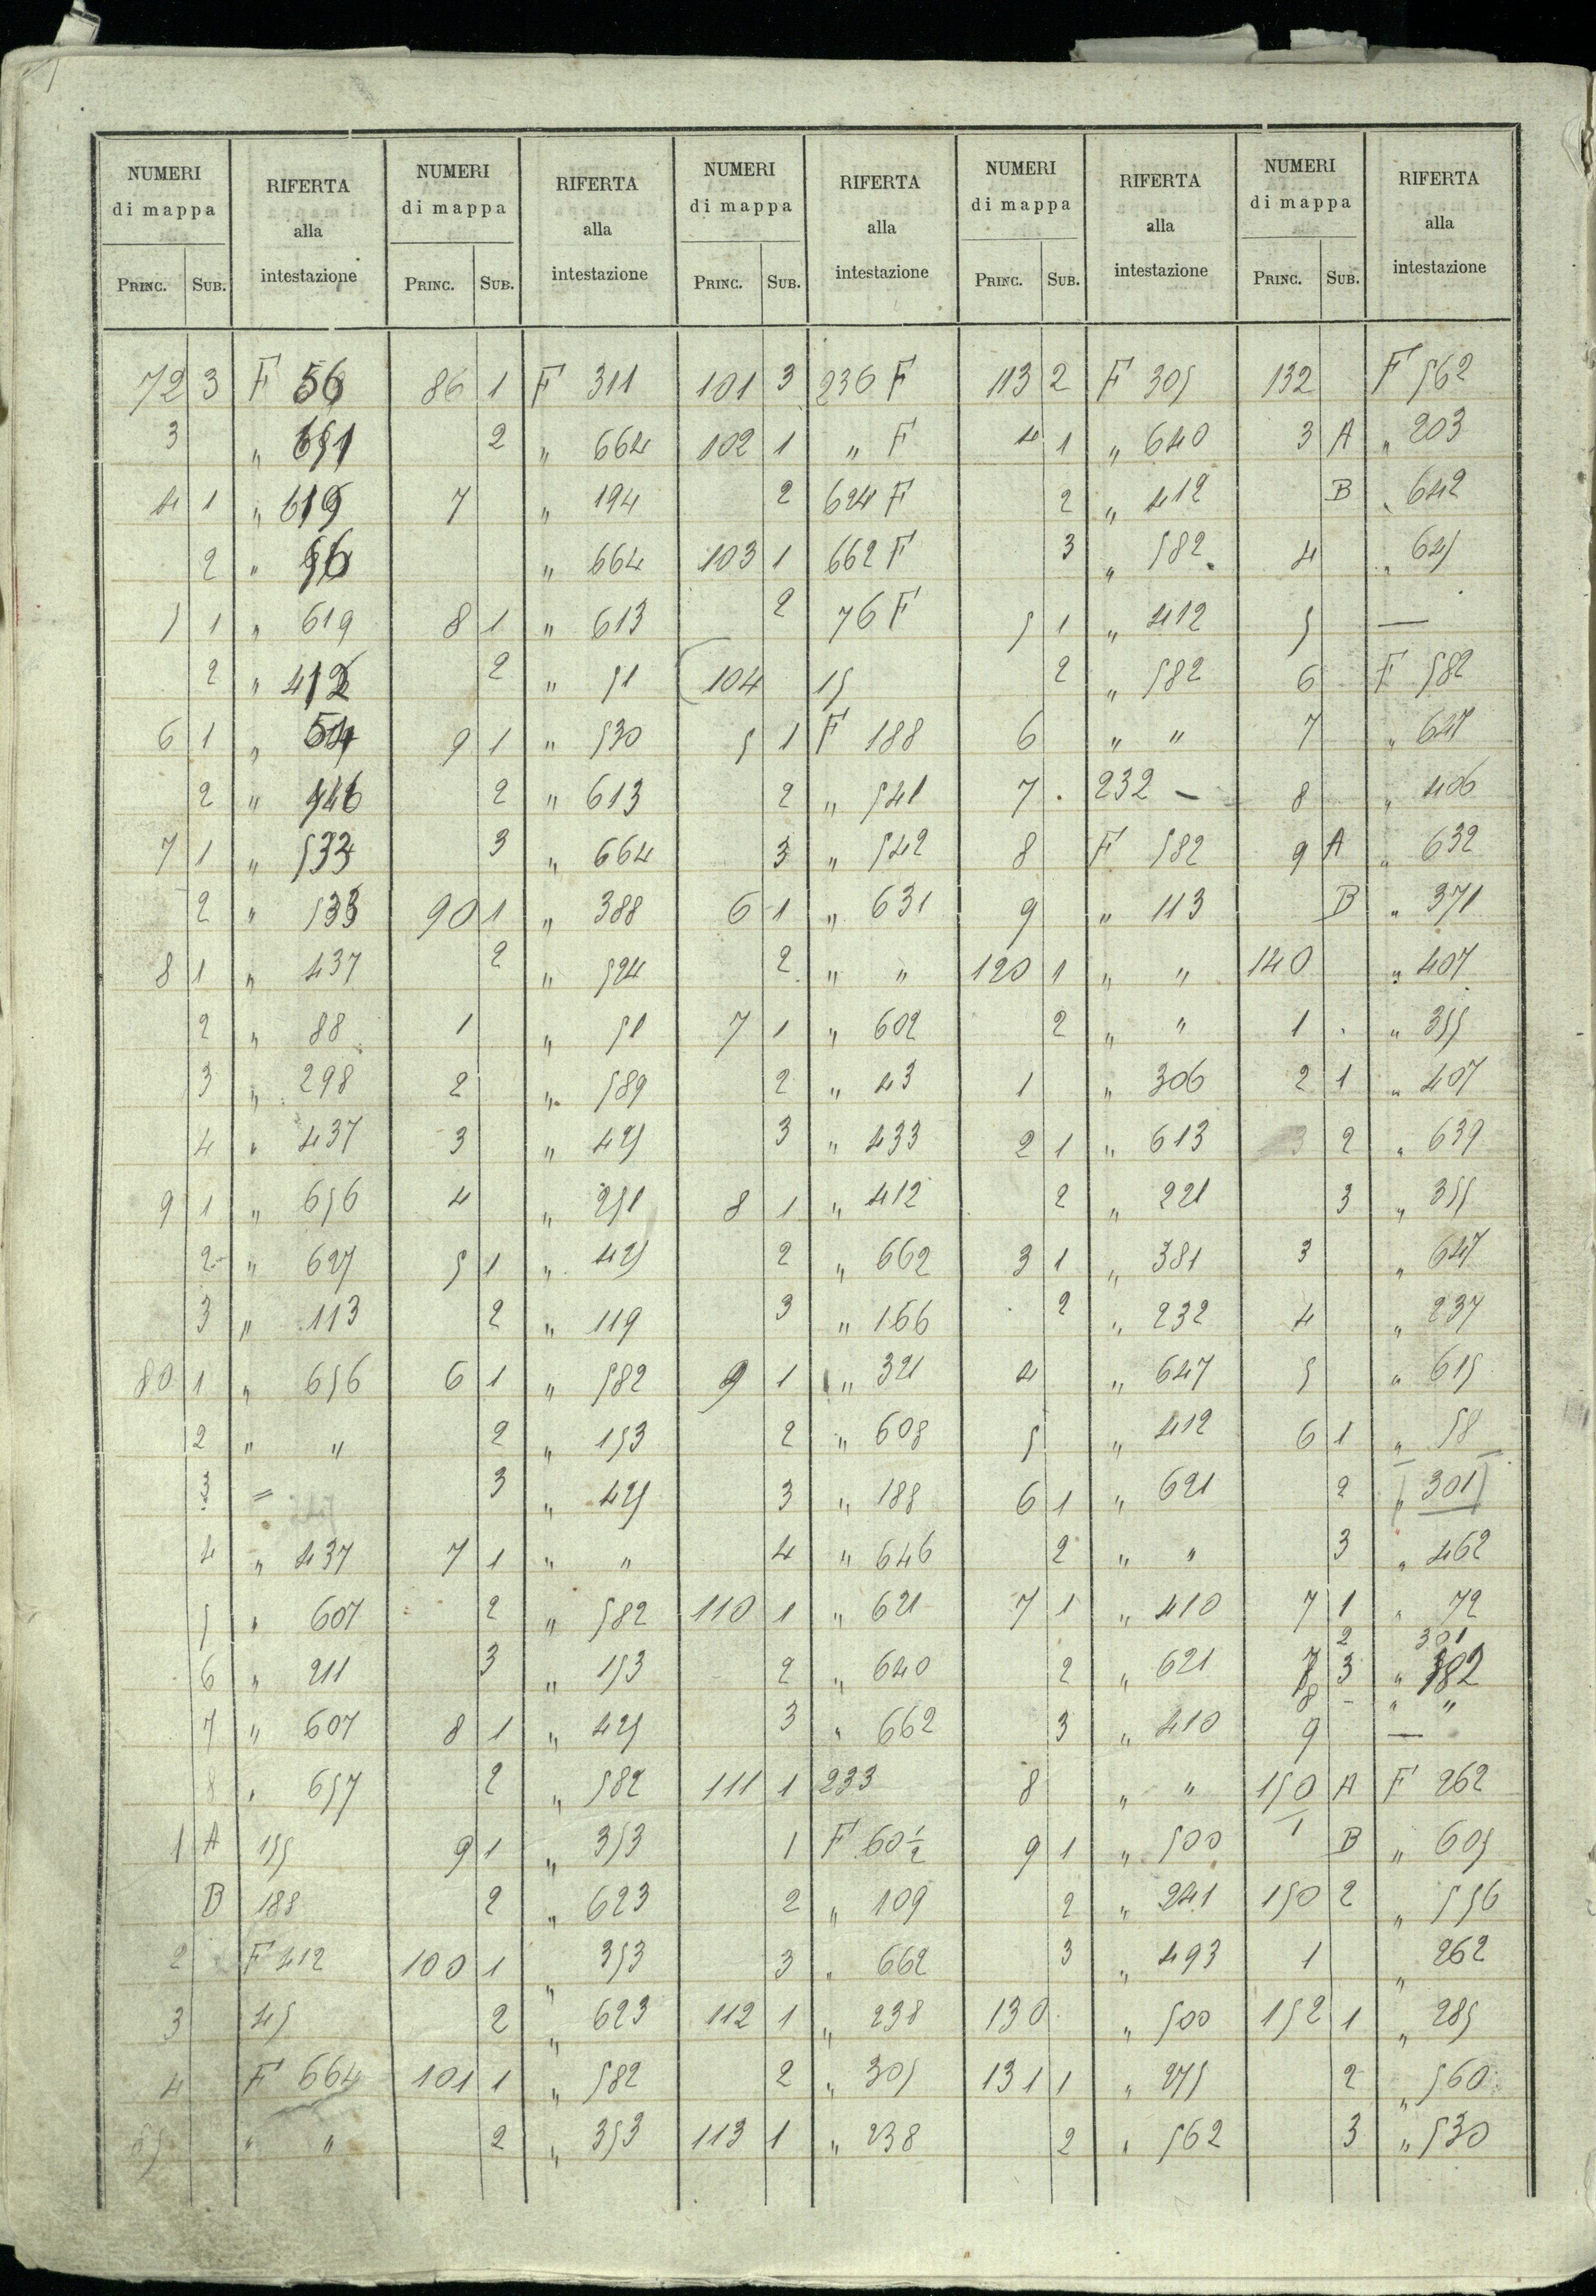 NUMERI di mappa RIFERTA alla intestazione NUMERI di mappa RIFERTA alla intestazione NUMERI di mappa RIFERTA alla intestazione NUMERI di mappa RIFERTA alla intestazione NUMERI di mappa RIFERTA alla intestazione
PRINC. SUB. PRINC. SUB. PRINC. SUB. PRINC. SUB. PRINC. SUB.
72 3 F 56 86 1 F 311 101 3 236 F 113 2 F 305 132 F 562
3 " 2 " 664 102 1 " F 4 1 " 640 3 A " 203
4 1 " 619 7 " 194 2 624 F 2 " 412 B " 642
2 " 56 " 664 103 1 662 F 3 " 582 4 " 645
5 1 " 619 8 1 " 613 2 76 F 5 1 " 412 5 —
2 " 412 2 " 51 104 15 2 " 582 6 F 582
6 1 " 9 1 " 530 5 1 F 188 6 " " 7 " 647
2 " 446 2 " 613 2 " 541 7 232 — 8 " 406
7 1 " 533 3 " 664 3 " 542 8 F 582 9 A " 632
2 " 533 90 1 " 388 6 1 " 631 9 " 113 B " 371
8 1 " 437 2 " 524 2 " " 120 1 " " 140 " 407
2 " 88 1 " 51 7 1 " 602 2 " " 1 " 355
3 " 298 2 " 589 2 " 43 1 " 306 2 1 " 407
4 " 437 3 " 425 3 " 433 2 1 " 613 2 " 639
9 1 " 656 4 " 251 8 1 " 412 2 " 221 3 " 355
2 " 627 5 1 " 425 2 " 662 3 1 " 381 3 " 647
3 " 113 2 " 119 3 " 166 2 " 232 4 " 237
80 1 " 656 6 1 " 582 9 1 " 321 4 " 647 5 " 615
2 " " 2 " 153 2 " 608 5 " 412 6 1 " 58
3 = 3 " 425 3 " 188 6 1 " 621 2 " 301
4 " 437 7 1 " " 4 " 646 2 " " 3 " 462
5 " 607 2 " 582 110 1 " 621 7 1 " 410 7 1 " 72
2 301
6 " 211 3 " 153 2 " 640 2 " 621 7 3 " 382
8 - " "
7 " 607 8 1 " 425 3 " 662 3 " 410 9 —
8 " 657 2 " 582 111 1 233 8 " " 150 A F 262
1 A 155 9 1 " 353 1 F 60 1/2 9 1 " 500 1 B " 605
B 188 2 " 623 2 " 109 2 " 241 150 2 " 556
2 F 412 100 1 " 353 3 " 662 3 " 493 1 " 262
3 45 2 " 623 112 1 " 238 130 " 500 152 1 " 285
4 F 664 101 1 " 582 2 " 305 131 1 " 275 2 " 560
85 " " 2 " 353 113 1 " 238 2 " 562 3 " 530